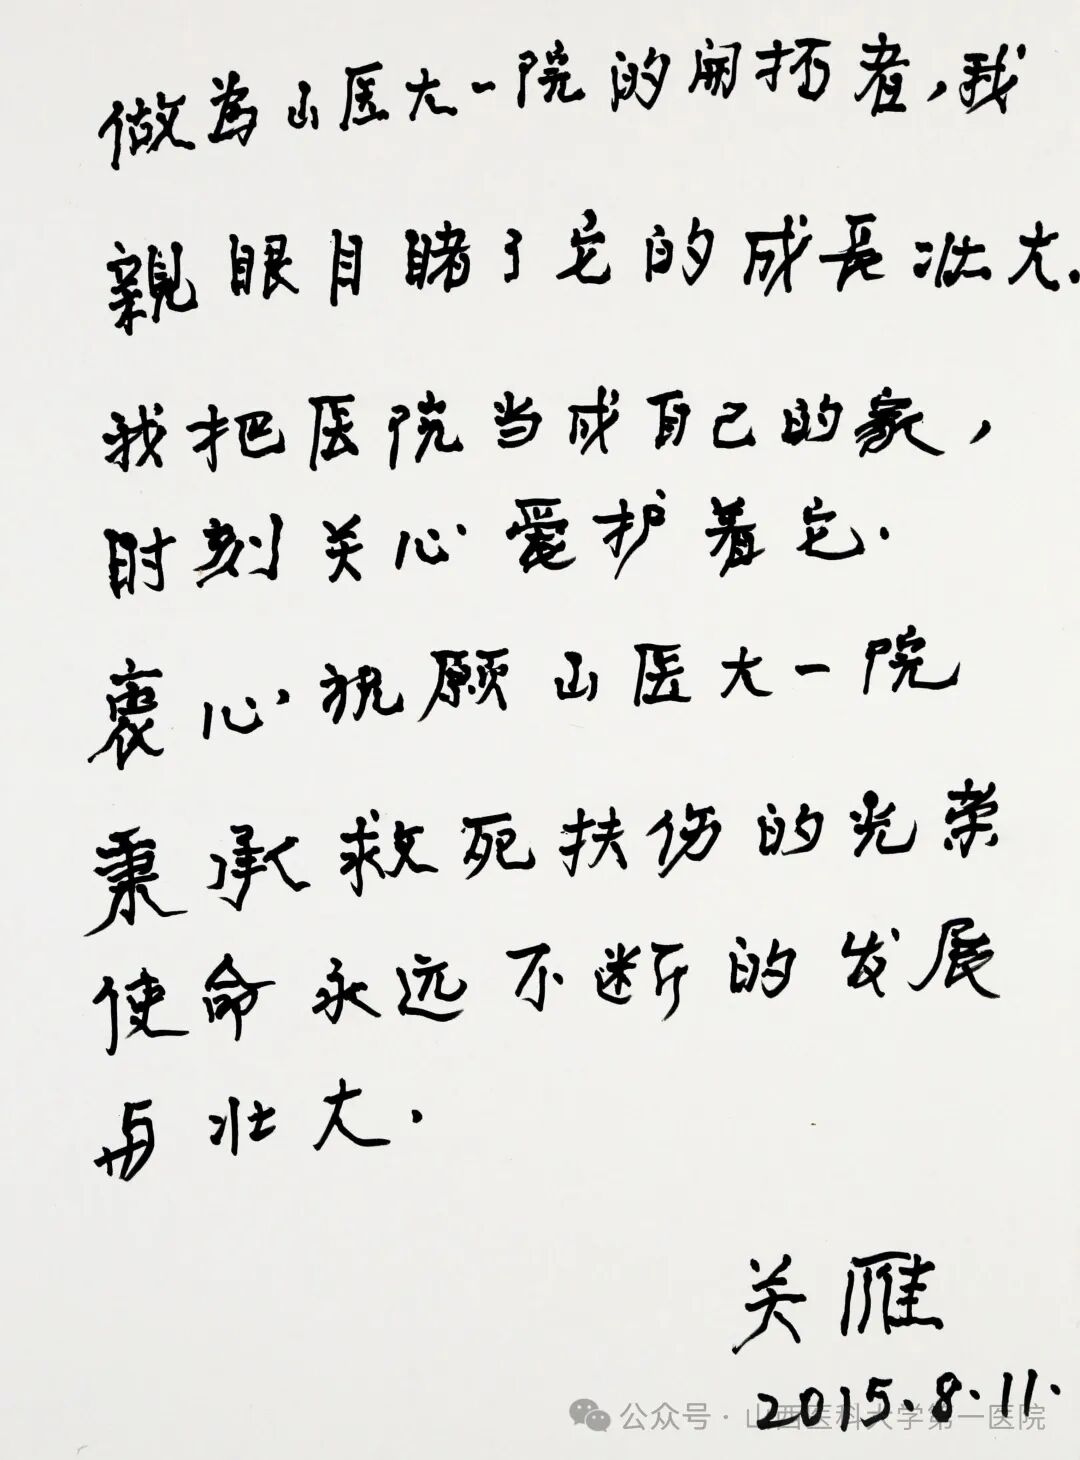 做為山医大一院的開拓者，我
親眼目睹了它的成長壮大.
我把医院当成自己的家，
时刻关心爱护着它.
衷心祝願山医大一院
秉承救死扶伤的光荣
使命永远不断的发展
与壮大.
关雁
2015.8.11.
公众号·山西医科大学第一医院